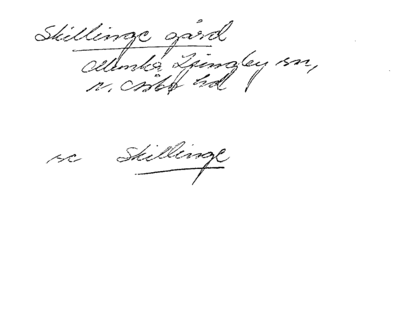 Skillinge gård
Munka Ljungby sn,
n. Åsbo hd
se Skillinge